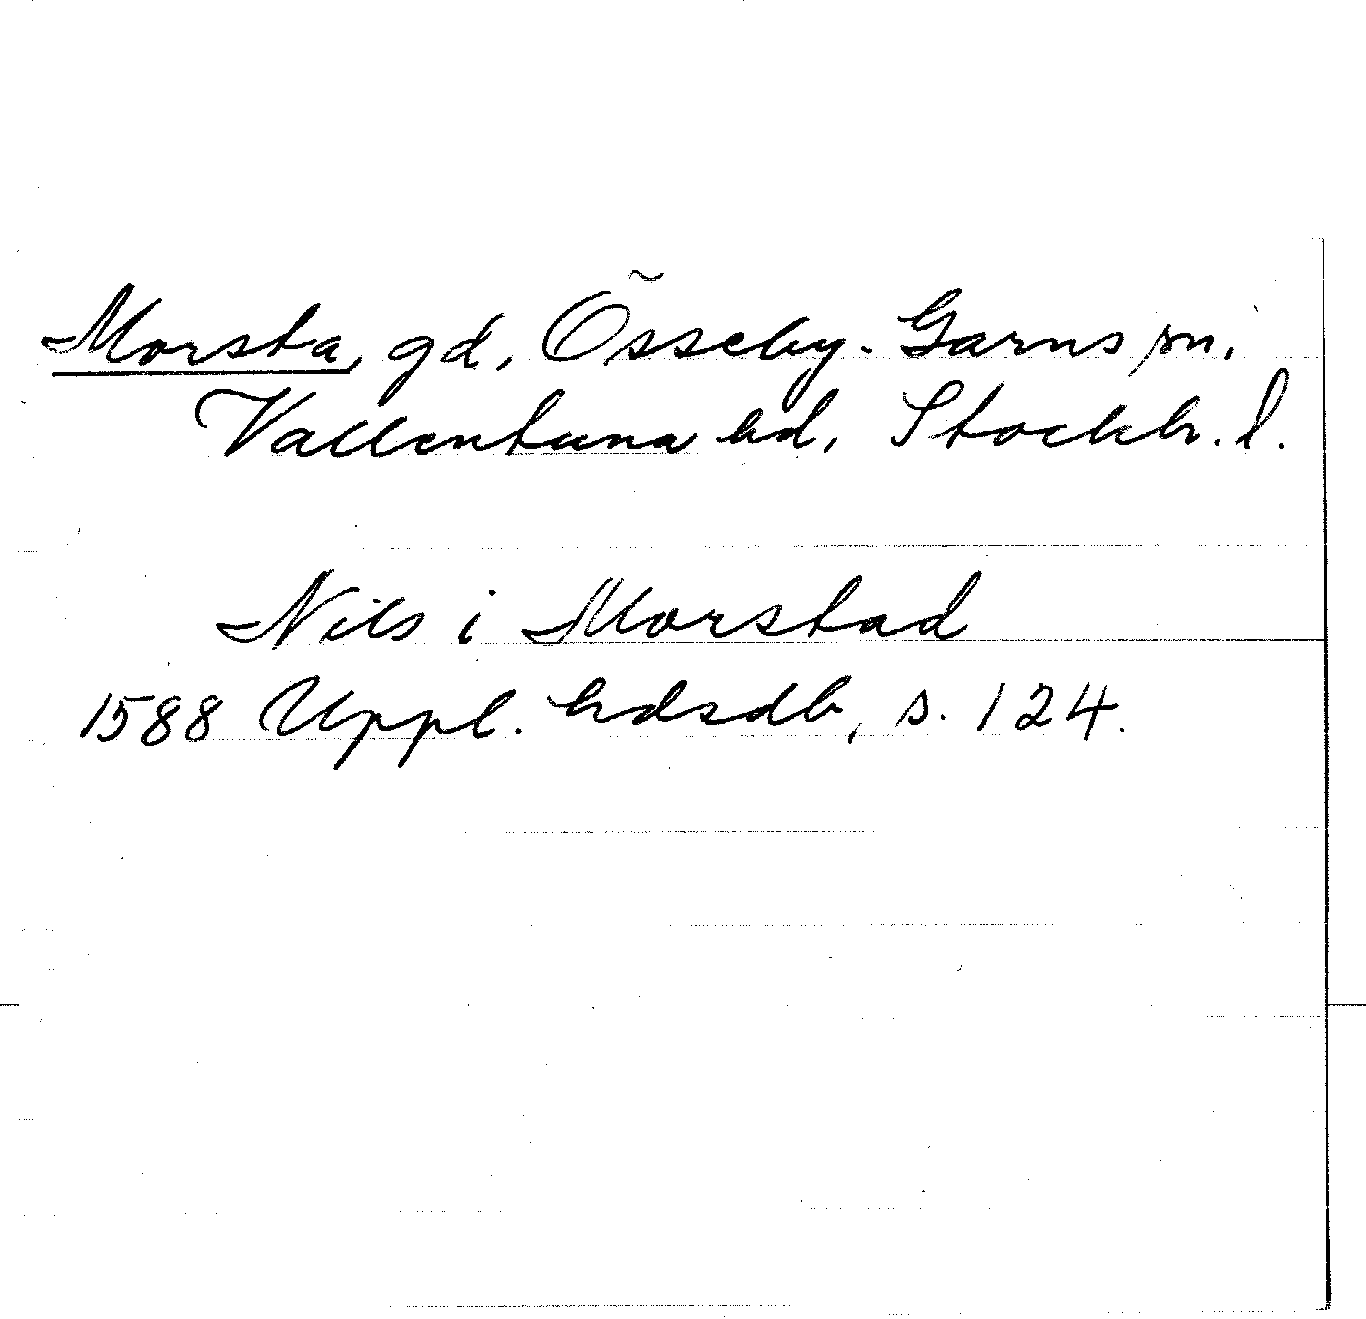 Morsta, gd, Össeby-Garns sn,
Vallentuna hd, Stockh. l.
Nils i Morstad
1588 Uppl. hdsdb, s. 124.